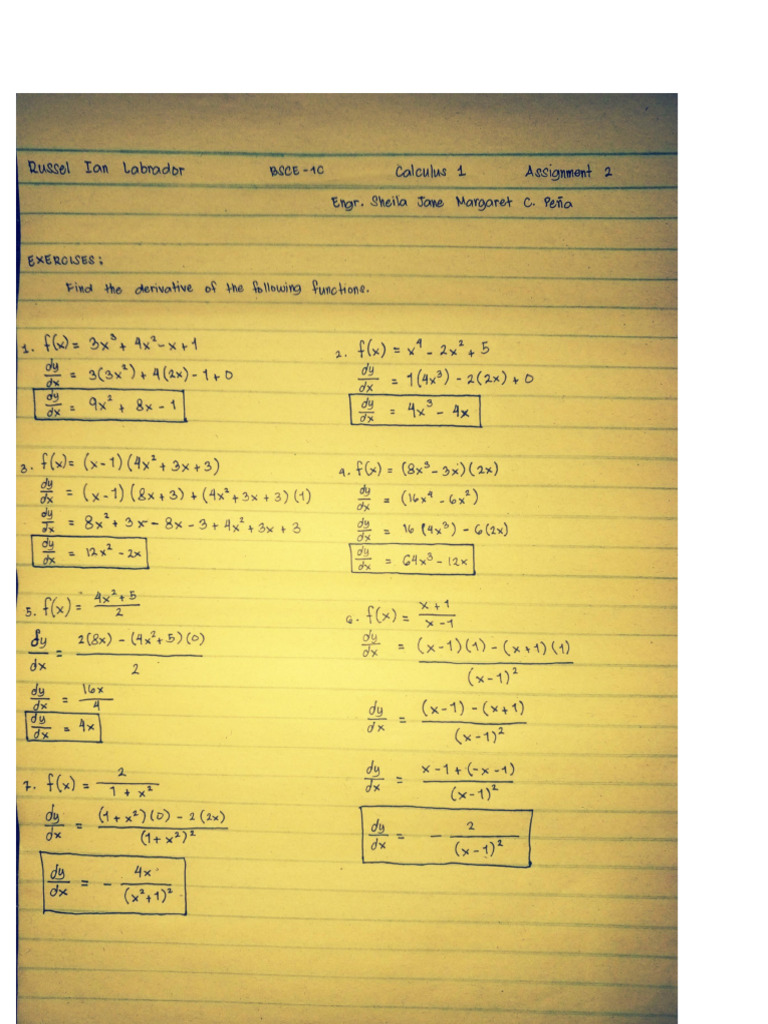 Russel Ian Labrador BSCE-1C Calculus 1 Assignment 2
Engr. Sheila Jane Margaret C. Peña
EXERCISES:
Find the derivative of the following functions.
1. f(x) = 3x³ + 4x² - x + 1
dy/dx = 3(3x²) + 4(2x) - 1 + 0
dy/dx = 9x² + 8x - 1
2. f(x) = x⁴ - 2x² + 5
dy/dx = 1(4x³) - 2(2x) + 0
dy/dx = 4x³ - 4x
3. f(x) = (x-1)(4x² + 3x + 3)
dy/dx = (x-1)(8x+3) + (4x² + 3x + 3)(1)
dy/dx = 8x² + 3x - 8x - 3 + 4x² + 3x + 3
dy/dx = 12x² - 2x
4. f(x) = (8x³ - 3x)(2x)
dy/dx = (16x⁴ - 6x²)
dy/dx = 16(4x³) - 6(2x)
dy/dx = 64x³ - 12x
5. f(x) = 4x² + 5 / 2
dy/dx = 2(8x) - (4x² + 5)(0) / 2
dy/dx = 16x / 4
dy/dx = 4x
6. f(x) = x + 1 / x - 1
dy/dx = (x-1)(1) - (x+1)(1) / (x-1)²
dy/dx = (x-1) - (x+1) / (x-1)²
dy/dx = x - 1 + (-x - 1) / (x-1)²
dy/dx = - 2 / (x-1)²
7. f(x) = 2 / 1 + x²
dy/dx = (1 + x²)(0) - 2(2x) / (1 + x²)²
dy/dx = - 4x / (x² + 1)²